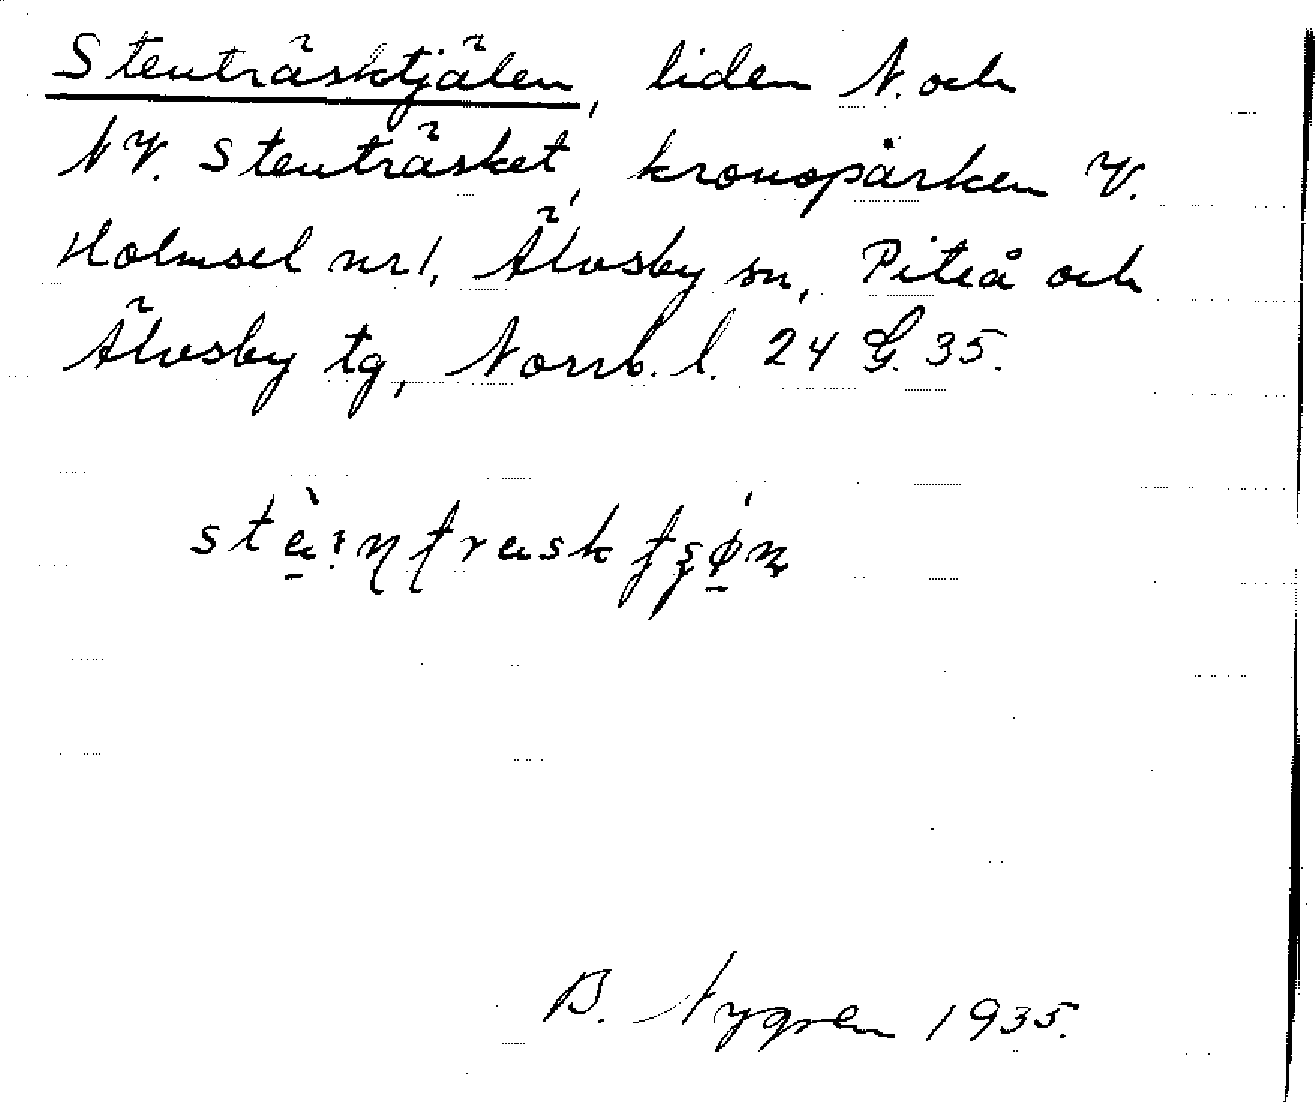 Stenträsktjälen, liden N. och
NV. Stenträsket, kronopärken V.
Holmsel nr 1, Älvsby sn, Piteå och
Älvsby tg, Norrb. l. 24 G. 35.
B. Nygren 1935.